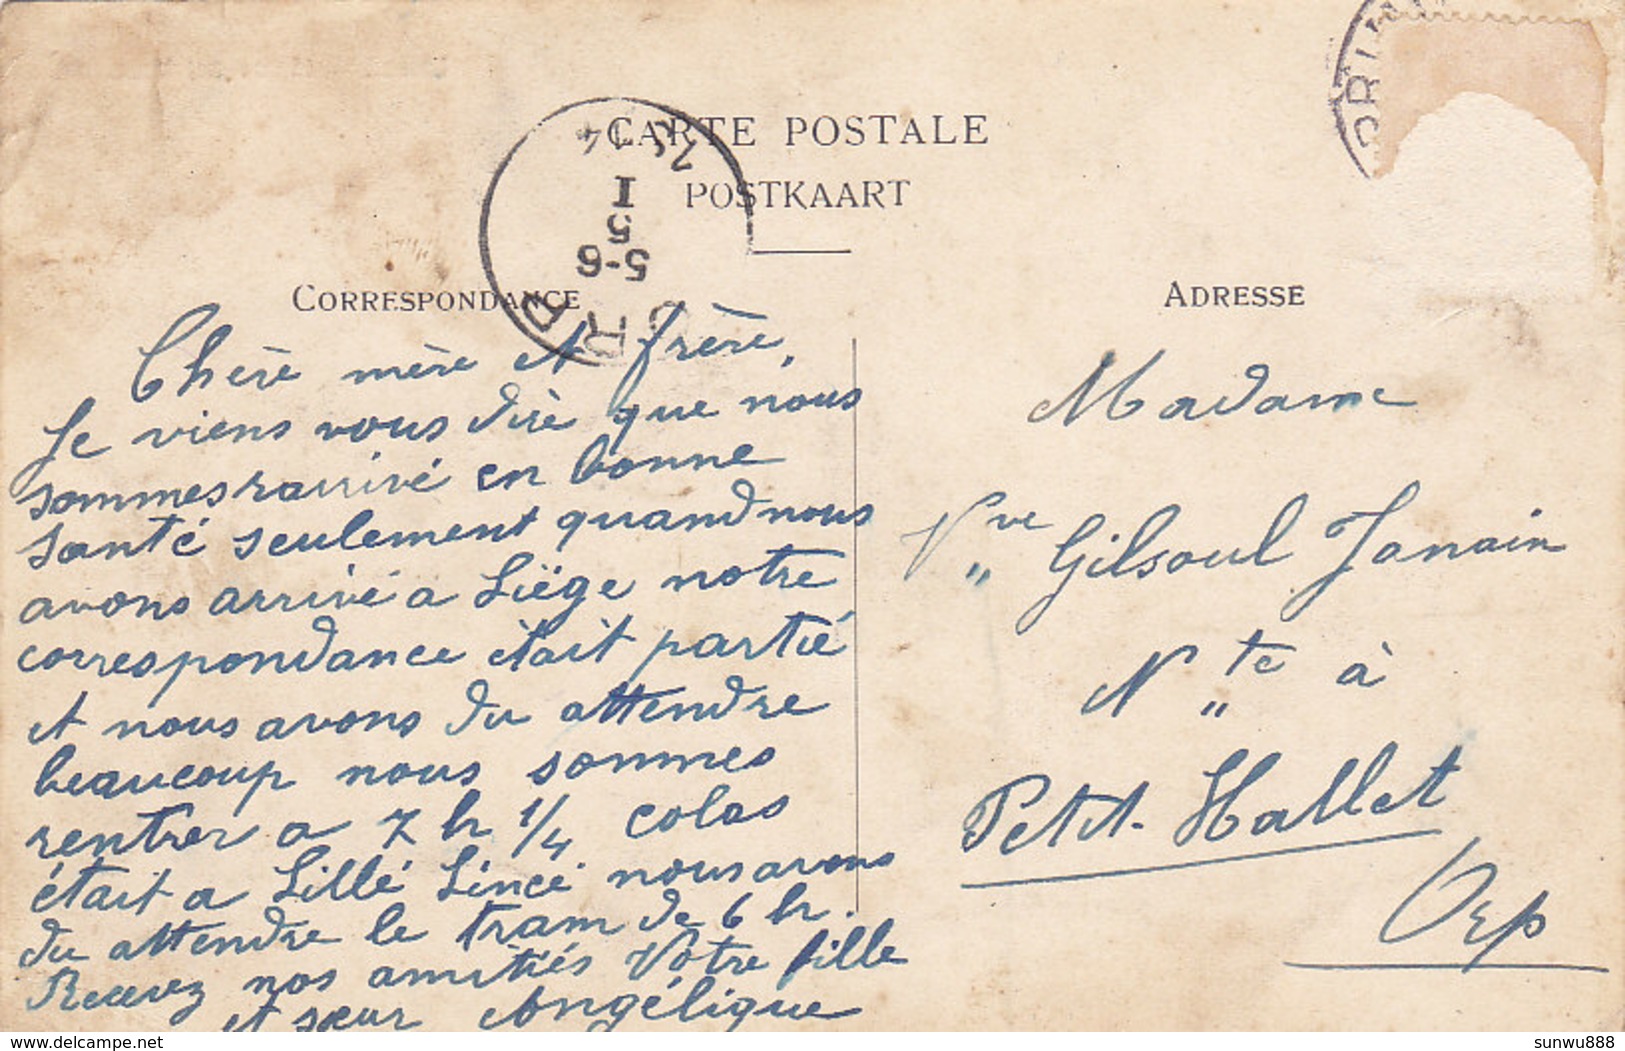 CARTE POSTALE
POSTKAART
CORRESPONDANCE
ADRESSE
14
I
5
5-6
ORP
Chère mère et frère,
Je viens vous dire que nous
sommes rarrivé en bonne
santé seulement quand nous
avons arrivé a Liège notre
correspondance était partie
et nous avons du attendre
beaucoup nous sommes
rentrer a 7 h 1/4 colas
était a Lillé Lincé nous avons
du attendre le tram de 6 h.
Recevez nos amitiés Votre fille
et sœur Angélique
Madame
Vve Gilsoul Janain
Nte à
Petit-Hallet
Orp
www.delcampe.net
sunwu888